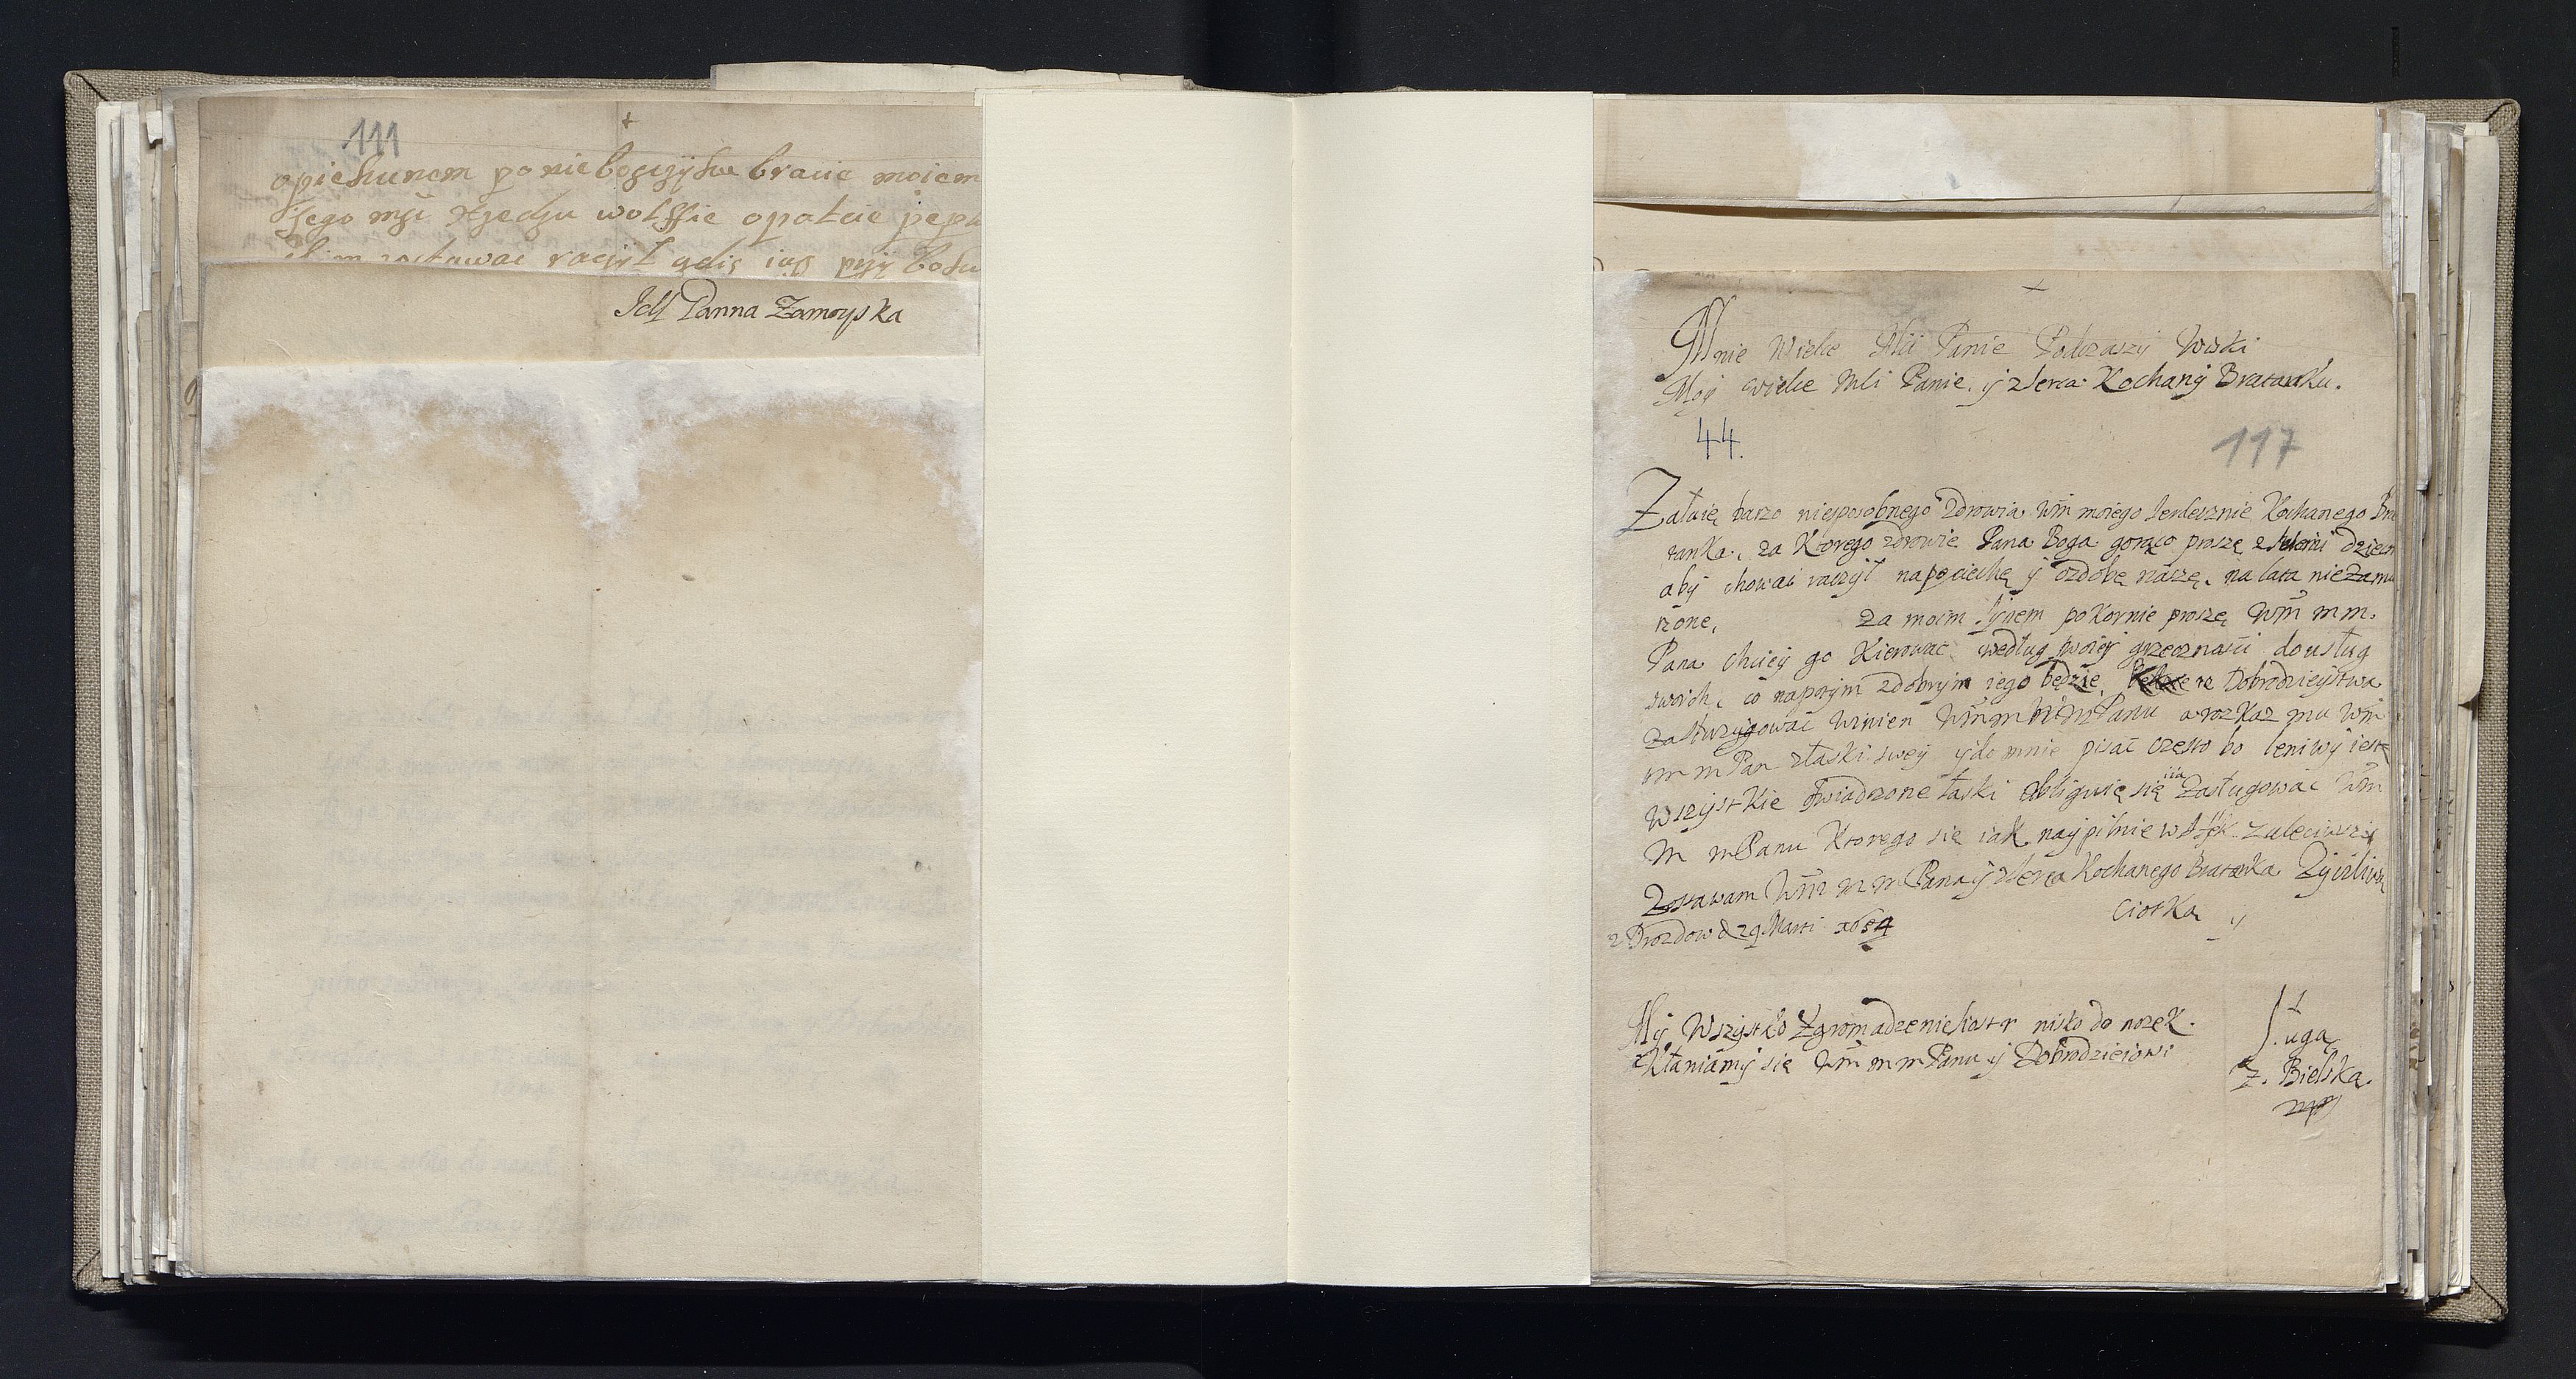 111
opiekunem po nieboszczyku bracie moiem
Jego msci xsiedzu wolssie opatcie
zostawac raczył gdis iusz
JeM Panna Zamoyska
Mnie Wielce Mći Panie Podczaszy
Moy wielce Mći Panie, y z serca Kochany Bratanku.
44.
117
Załuię barzo niesposobnego Zdrowia Wm̃ moiego serdecznie Kochanego Bra
tanka, za Ktorego zdrowie Pana Boga gorąco proszę z
aby chowac raczył napociechę y ozdobę naszę, na lata nieZam
rzone, Za moim Synem poKornie proszę Wm̃ m m.
Pana chciey go Kierowac według swoiey grzecznosci dousług
swoich, co napotym zdobrym iego będzie, te Dobrodzieystwa
Winien Wm̃ m m Panu a rozKaz mu Wm̃
m m Pan złaski swey ydo mnie pisać często bo leniwy iest
WszystKie swiadczone łaski obliguię się iia Zasługowac Wm̃
m mPanu Ktorego się iak naypilnie w Afek zaleciwszy
Zostawam Wm̃ m m Pana y zSerca Kochanego Bratanka Zyczliwą
CiotKą y
z Drozdow d 29 Marti 1654
My Wszystko Zgromadzenie siostr nisko do nozek
Kłaniamy się Wm̃ m m Panu y Dobrodzieiowi
Sługą
Z. Bielska
mp